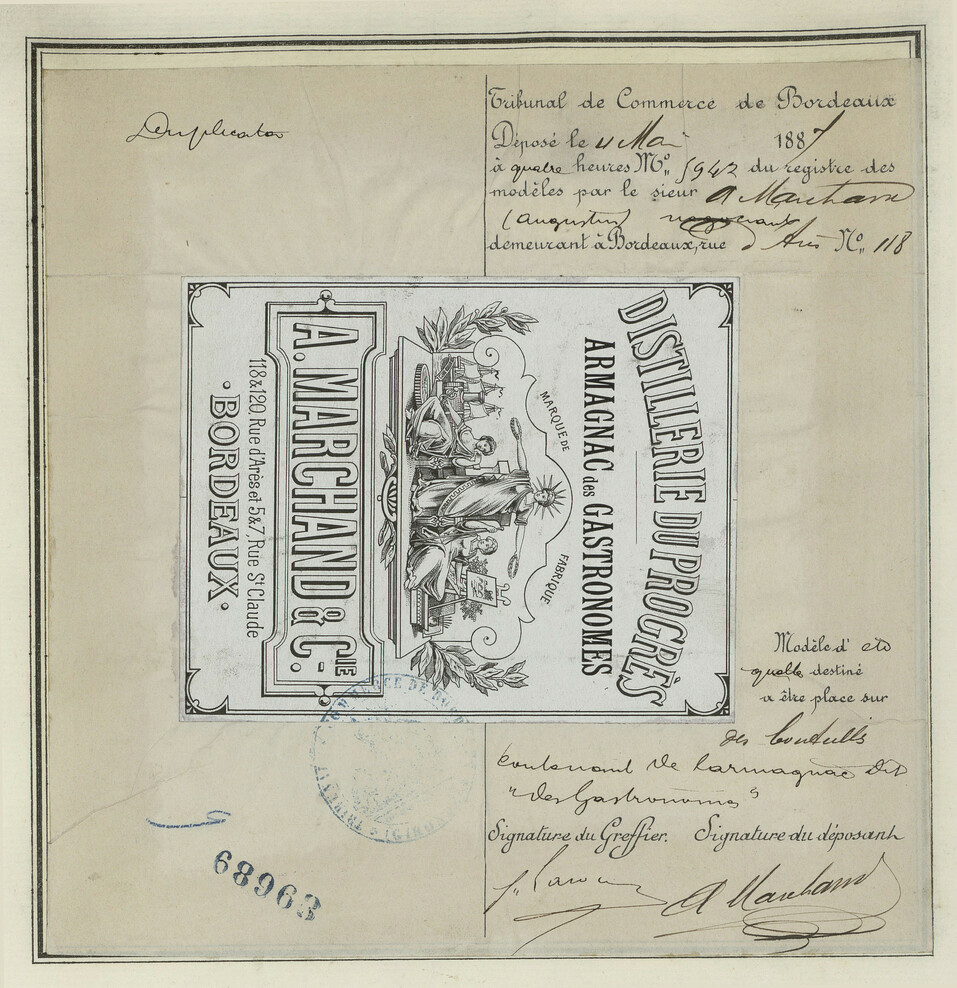 Duplicata
Tribunal de Commerce de Bordeaux
Déposé le 4 Mai 1887
à quatre heures Nº 5942 du registre des
modèles par le sieur A Marchand
(Augustin)
demeurant à Bordeaux, rue d'Arès Nº 118
DISTILLERIE DU PROGRÈS
ARMAGNAC des GASTRONOMES
MARQUE DE FABRIQUE
A. MARCHAND & CIE.
118 & 120, Rue d'Arès et 5 & 7, Rue St Claude
• BORDEAUX •
Modèle d' eti
quette destiné
a être place sur
des bouteilles
contenant de l'armagnac dit
"des Gastronomes"
Signature du Greffier. Signature du déposant
A Marchand
68963